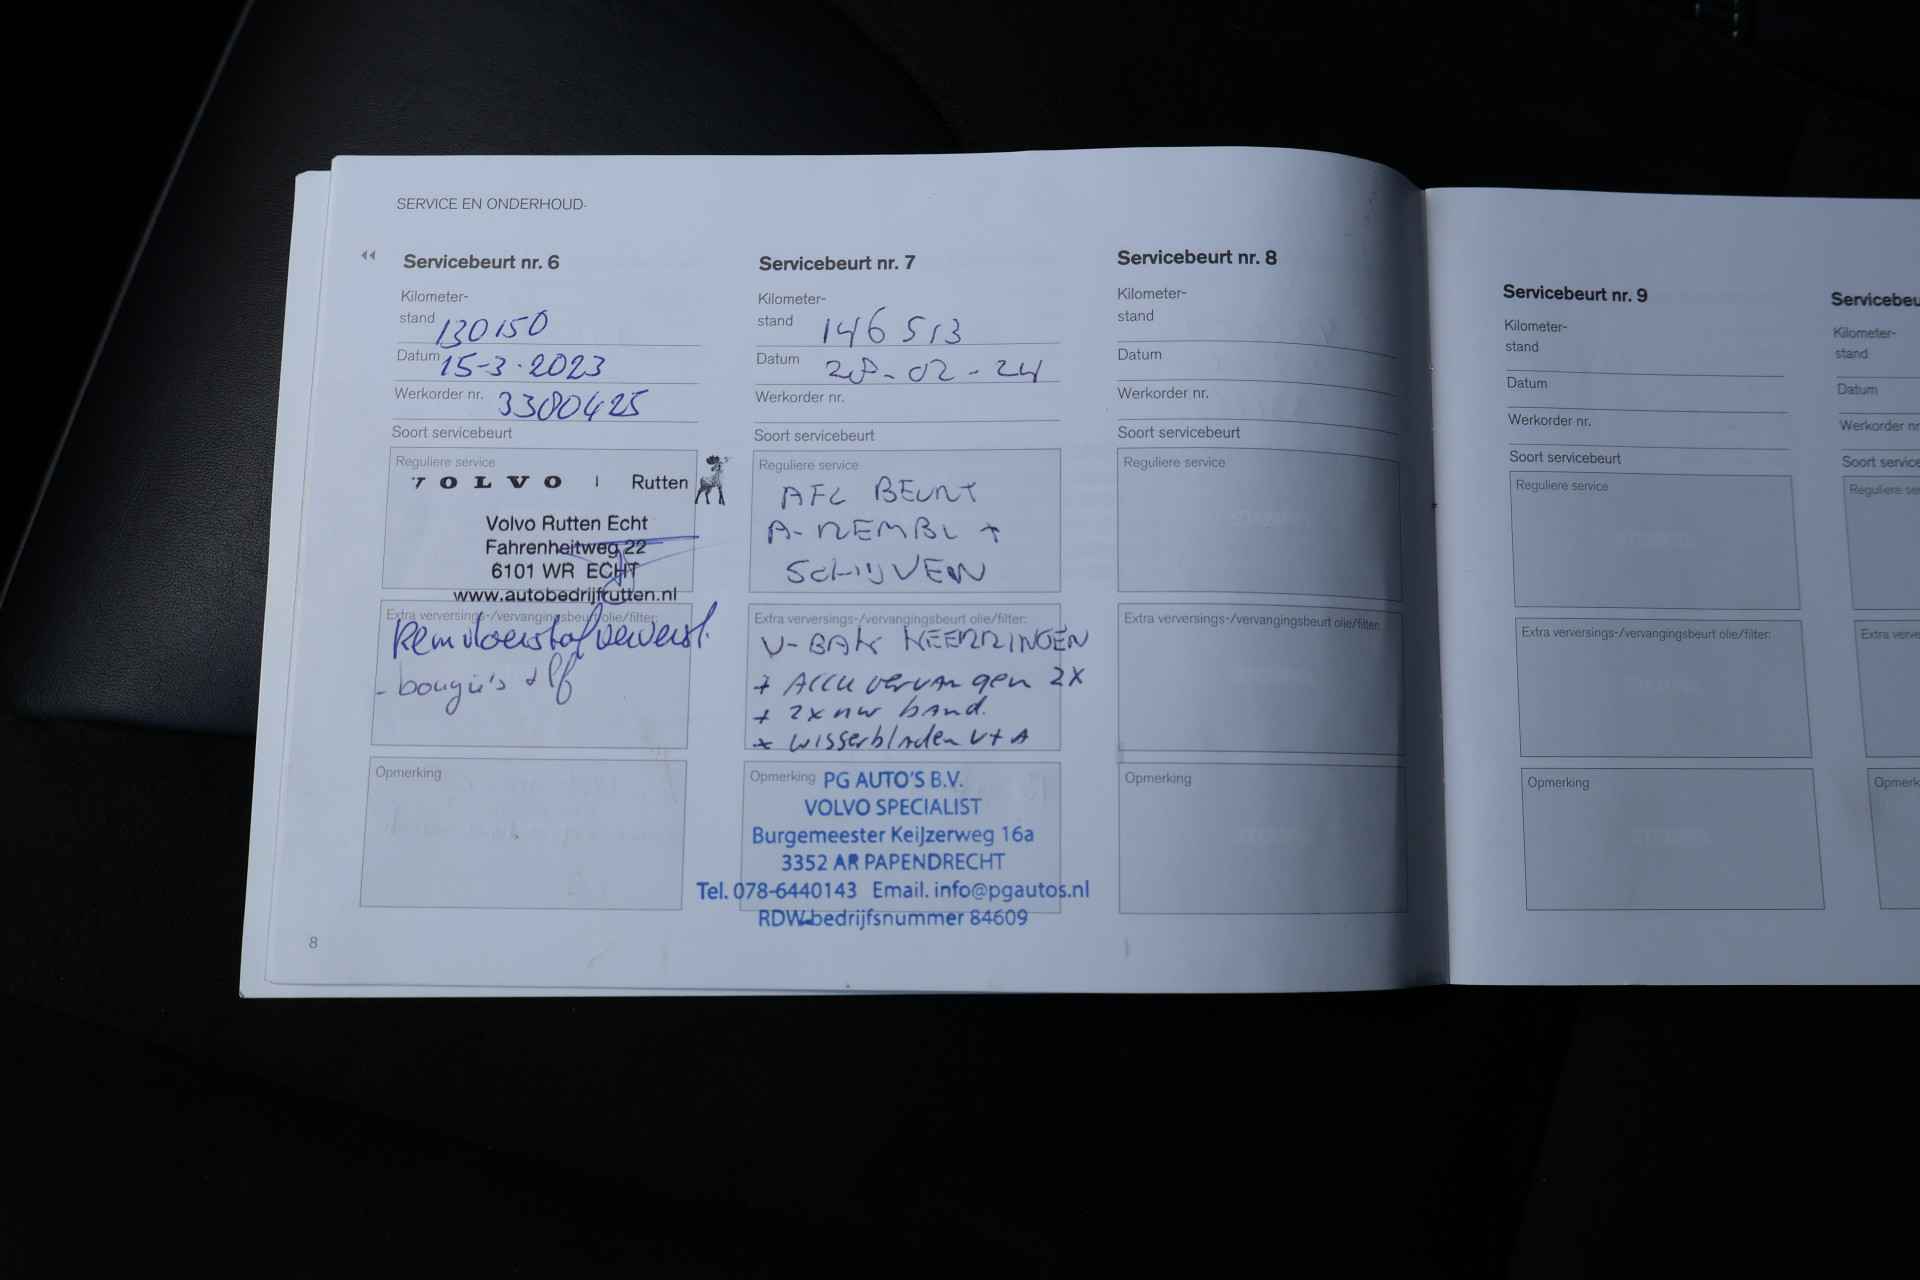 SERVICE EN ONDERHOUD
Servicebeurt nr. 6
Kilometer-
stand 130150
Datum 15-3-2023
Werkorder nr. 3300425
Soort servicebeurt
Reguliere service
VOLVO | Rutten
Volvo Rutten Echt
Fahrenheitweg 22
6101 WR ECHT
www.autobedrijfrutten.nl
Extra verversings-/vervangingsbeurt olie/filter:
Remvloeistof ververst.
- bougie's + lf
Opmerking
8
Servicebeurt nr. 7
Kilometer-
stand 146513
Datum 28-02-24
Werkorder nr.
Soort servicebeurt
Reguliere service
AFL BEURT
A-REMBL +
SCHIJVEN
Extra verversings-/vervangingsbeurt olie/filter:
V-BAK KEERRINGEN
+ Accu vervangen 2x
+ 2x nw band.
* wisserbladen V+A
Opmerking
PG AUTO'S B.V.
VOLVO SPECIALIST
Burgemeester Keijzerweg 16a
3352 AR PAPENDRECHT
Tel. 078-6440143 Email. info@pgautos.nl
RDW-bedrijfsnummer 84609
Servicebeurt nr. 8
Kilometer-
stand
Datum
Werkorder nr.
Soort servicebeurt
Reguliere service
Extra verversings-/vervangingsbeurt olie/filter:
Opmerking
Servicebeurt nr. 9
Kilometer-
stand
Datum
Werkorder nr.
Soort servicebeurt
Reguliere service
Extra verversings-/vervangingsbeurt olie/filter:
Opmerking
Servicebeu
Kilometer-
stand
Datum
Werkorder nr
Soort service
Reguliere se
Extra verve
Opmerk